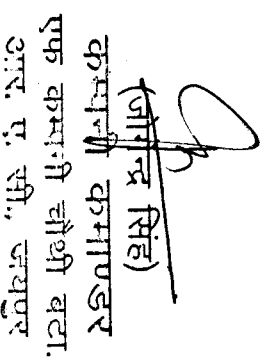 सिंह)
कम्पनी कमाण्डर
एफ कम्पनी चौथी बटा.
आर. ए. सी., जयपुर